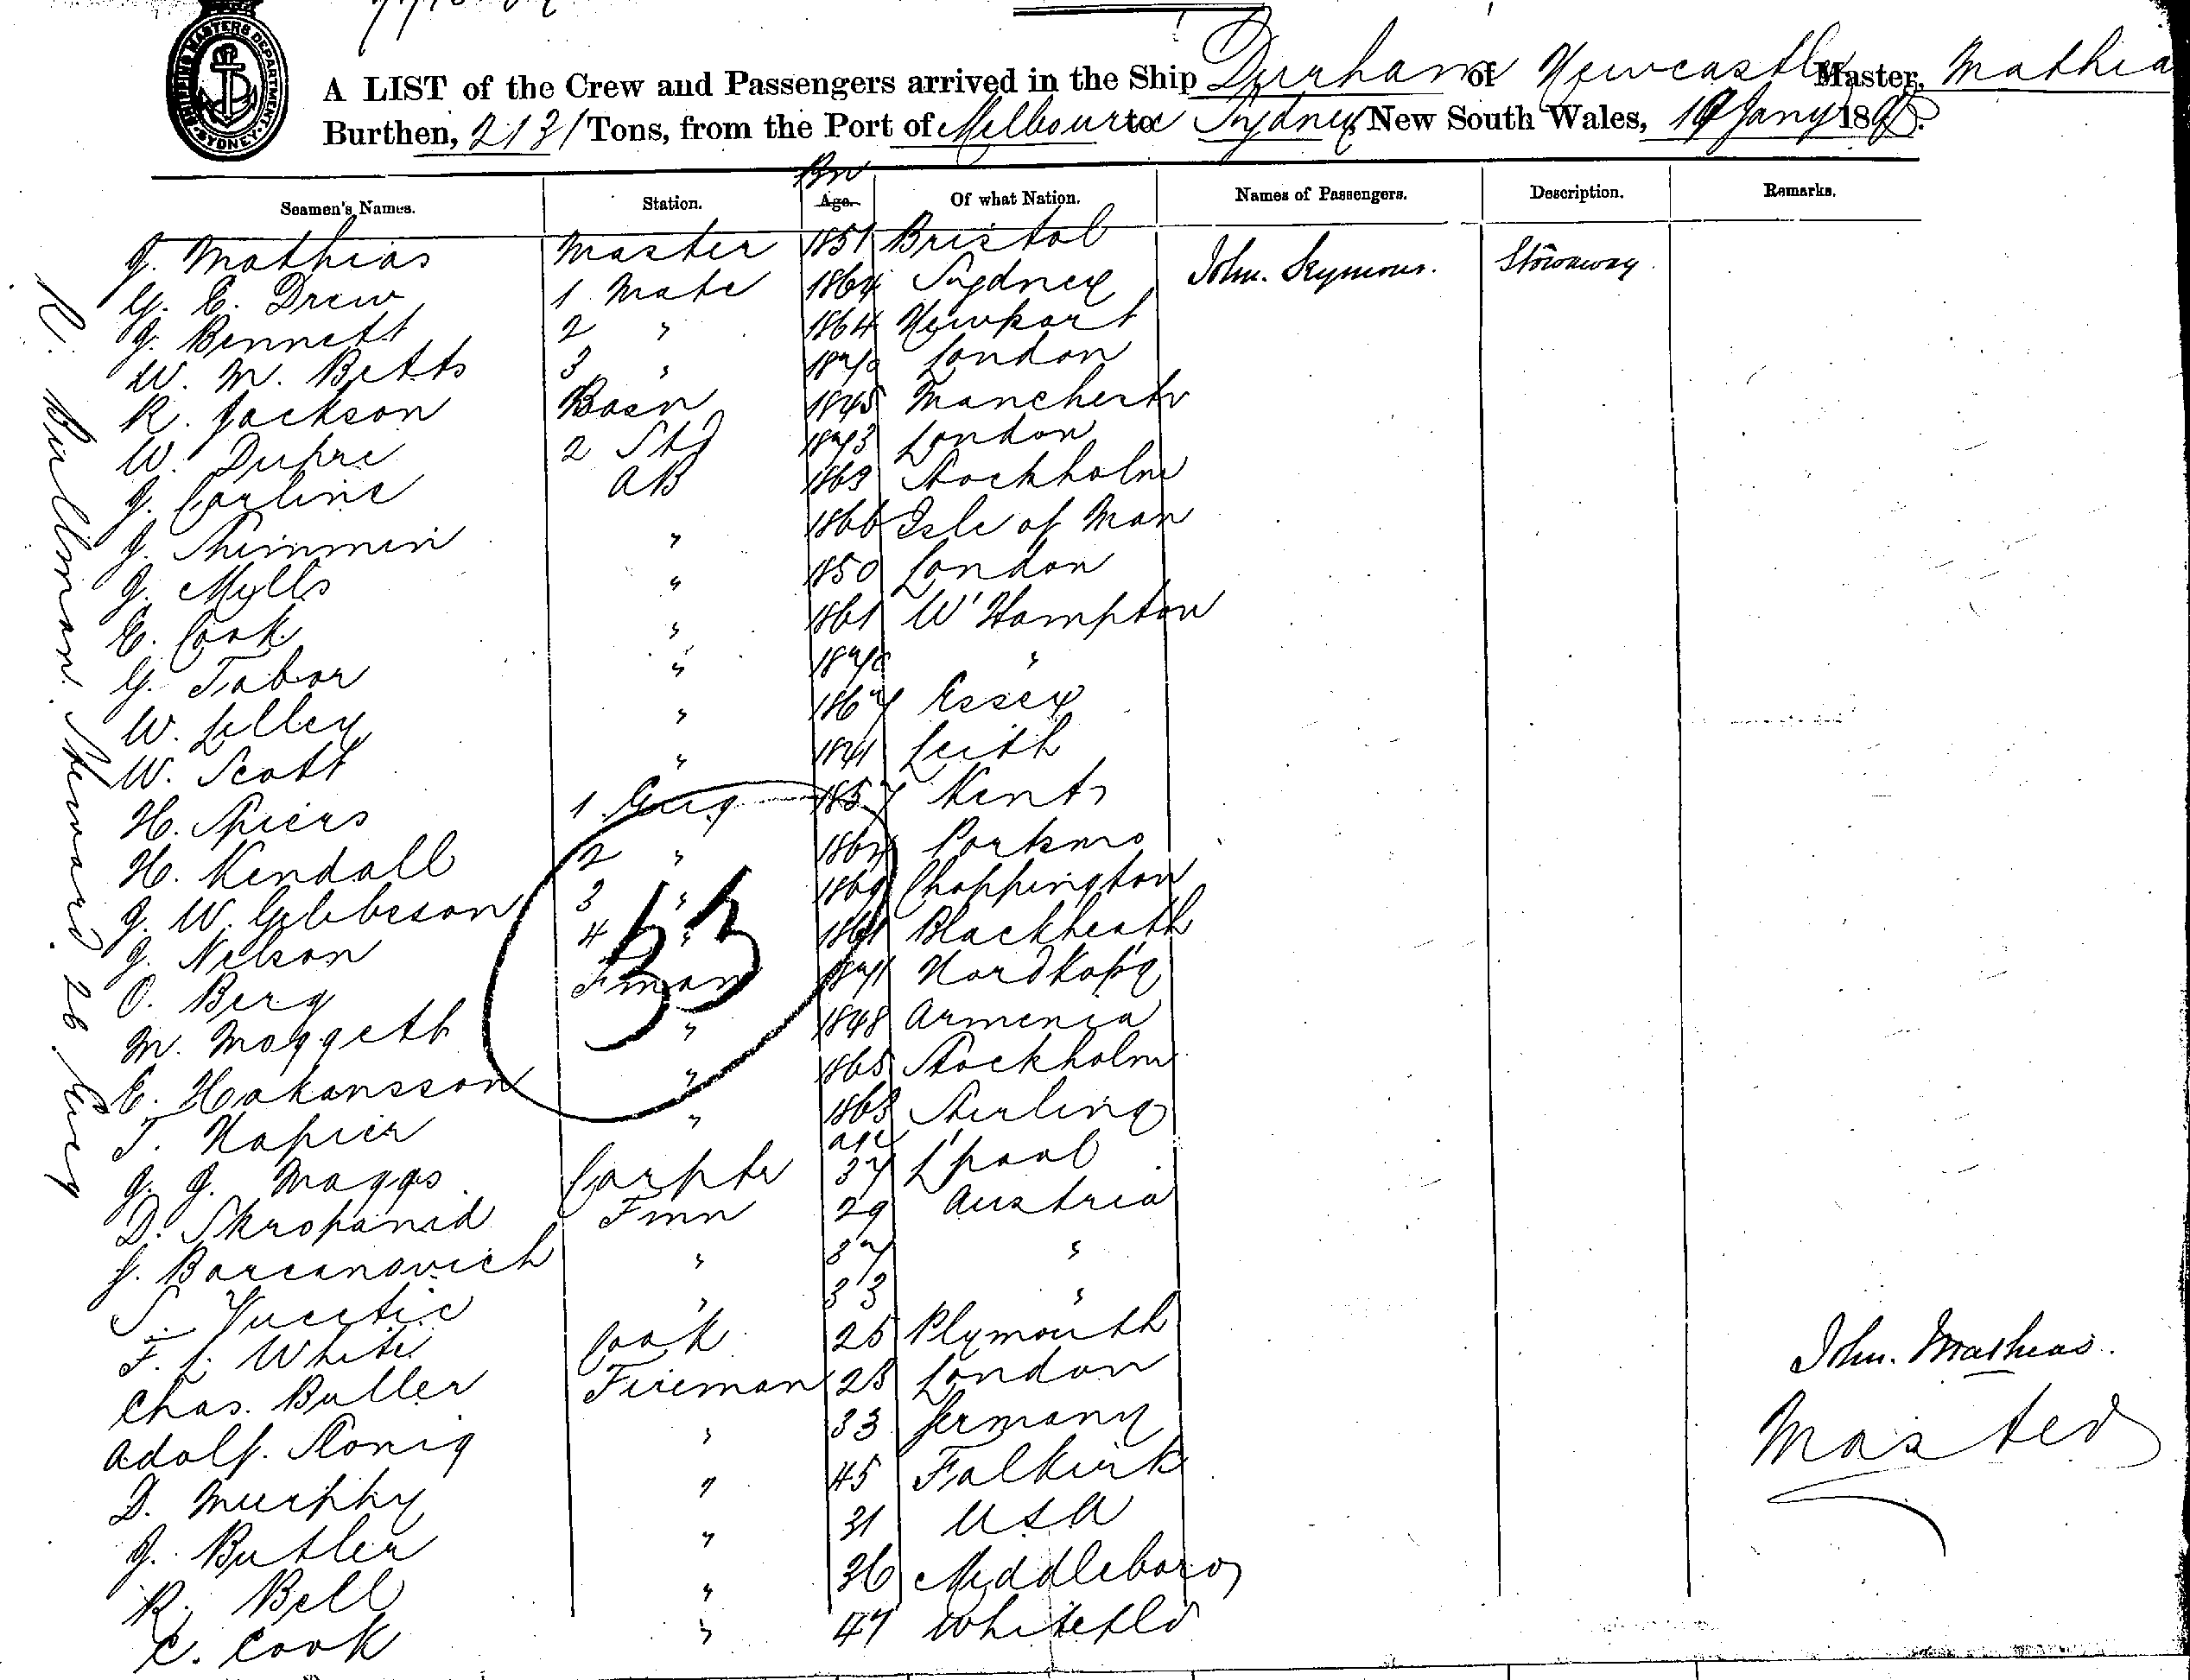 SHIPPING MASTERS DEPARTMENT SYDNEY
A LIST of the Crew and Passengers arrived in the Ship Durham of Newcastle Master, Mathia
Burthen, 2131 Tons, from the Port of Melbourne to Sydney New South Wales, 19 Jany 189
Bn
Seamen's Names. Station. Age. Of what Nation. Names of Passengers. Description. Remarks.
J. Mathias Master 1851 Bristol
G. E. Drew 1 Mate 1864 Sydney John. Seymour. Stowaway
J. Bennett 2 " 1864 Newport
W. M. Betts 3 " 1870 London
R. Jackson Bosn 1845 Manchestr
W. Dupre 2 Std 1873 London
J. Carline AB 1863 Stockholm
J. Shimmin " 1866 Isle of Man
J. Mylls " 1850 London
E. Cook " 1861 W'Hampton
G. Tabor " 1870 "
W. Lilley " 1867 Essex
W. Scott " 1841 Leith
H. Spiers 1 Eng 1857 Kent
H. Kendall 2 " 1864 Portsmo
J. W. Gibbeson 3 " 1869 Choppington
J. Nelson 4 " 1861 Blackheath
O. Berg Fman 1871 Nordkopg
M. Moggeth " 1848 Armenia
E. Hakansson " 1865 Stockholm
T. Napier " 1863 Stirling
J. J. Maggs Carptr age 37 L'pool
D. Skropanid Fmn 29 Austria
J. Barcanovich " 37 "
S. Vucetic " 33 "
F. L. White Cook 25 Plymouth
Chas. Buller Fireman 23 London
Adolf. Konig " 33 Germany
D. Murphy " 45 Falkirk
J. Butler " 31 USA
R. Bell " 36 Middleboro
C. Cook " 47 Whitefld
33
R. Bullman. Steward 26
John. Mathias.
Master